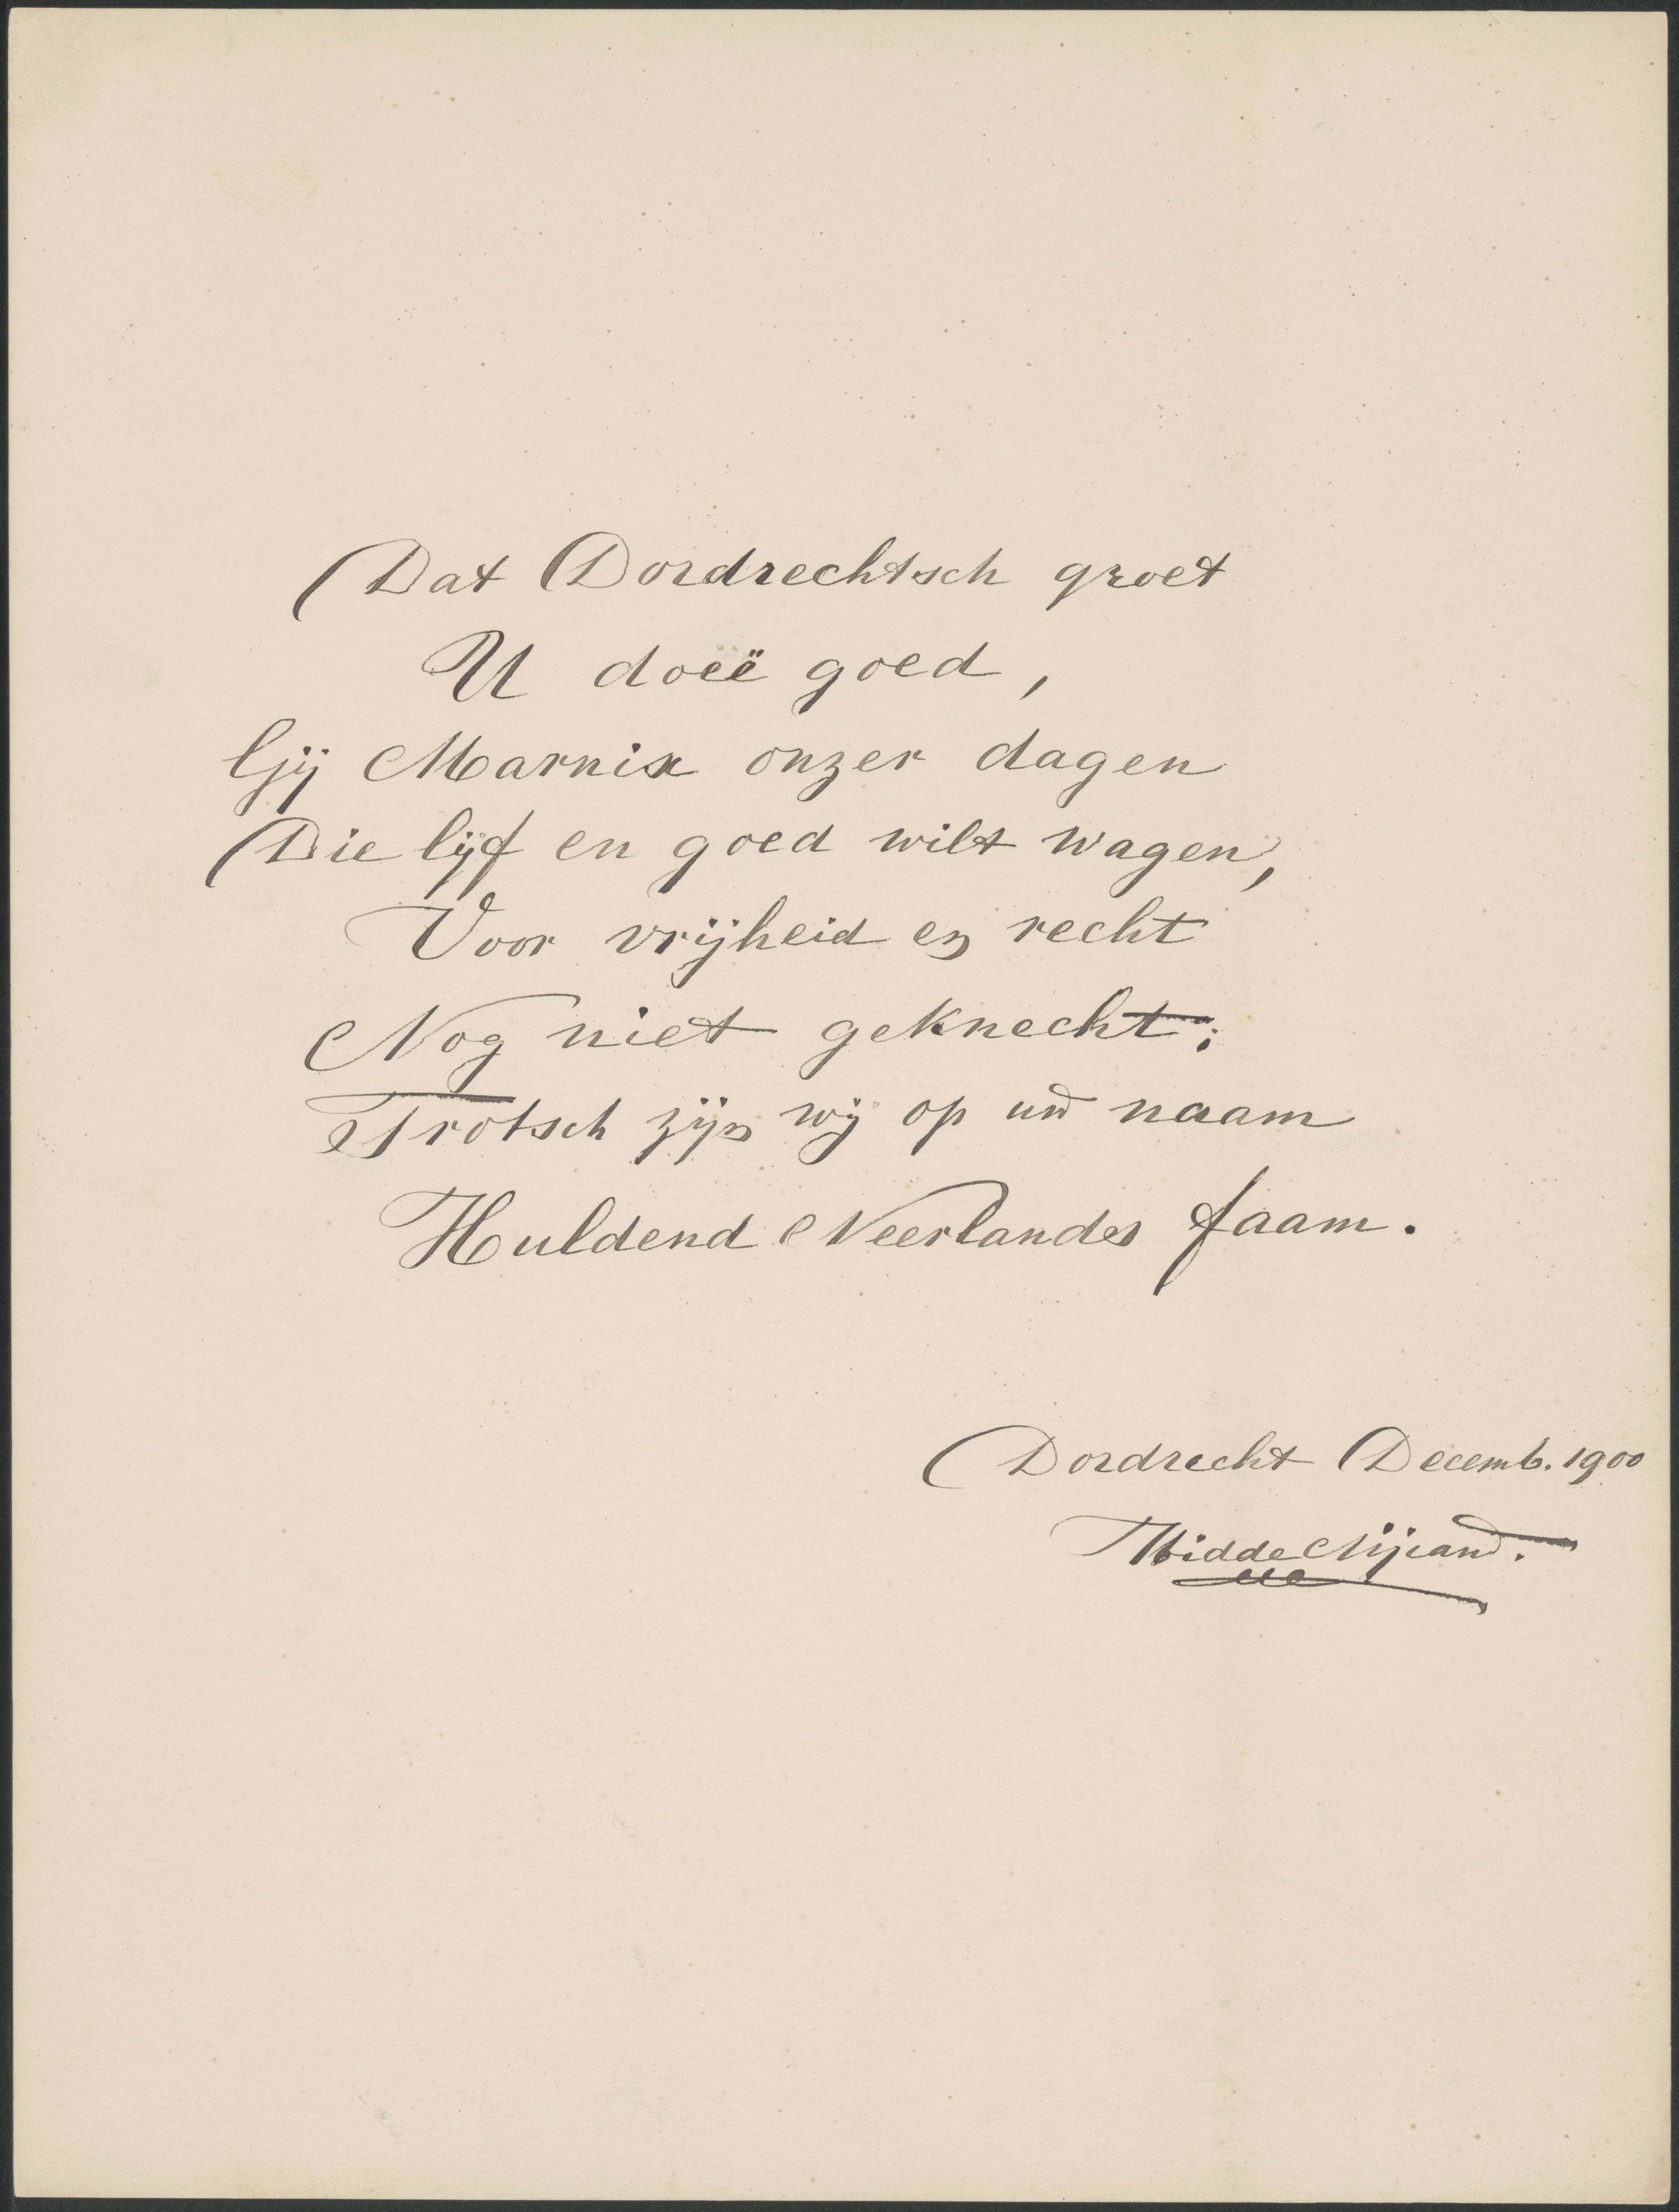 Dat Dordrechtsch groet
U doeë goed,
Gij Marnix onzer dagen
Die lijf en goed wilt wagen,
Voor vrijheid en recht
Nog niet geknecht;
Trotsch zijn wij op uw naam
Huldend Neerlandes faam.
Dordrecht Decemb. 1900
Hidde Nijland.